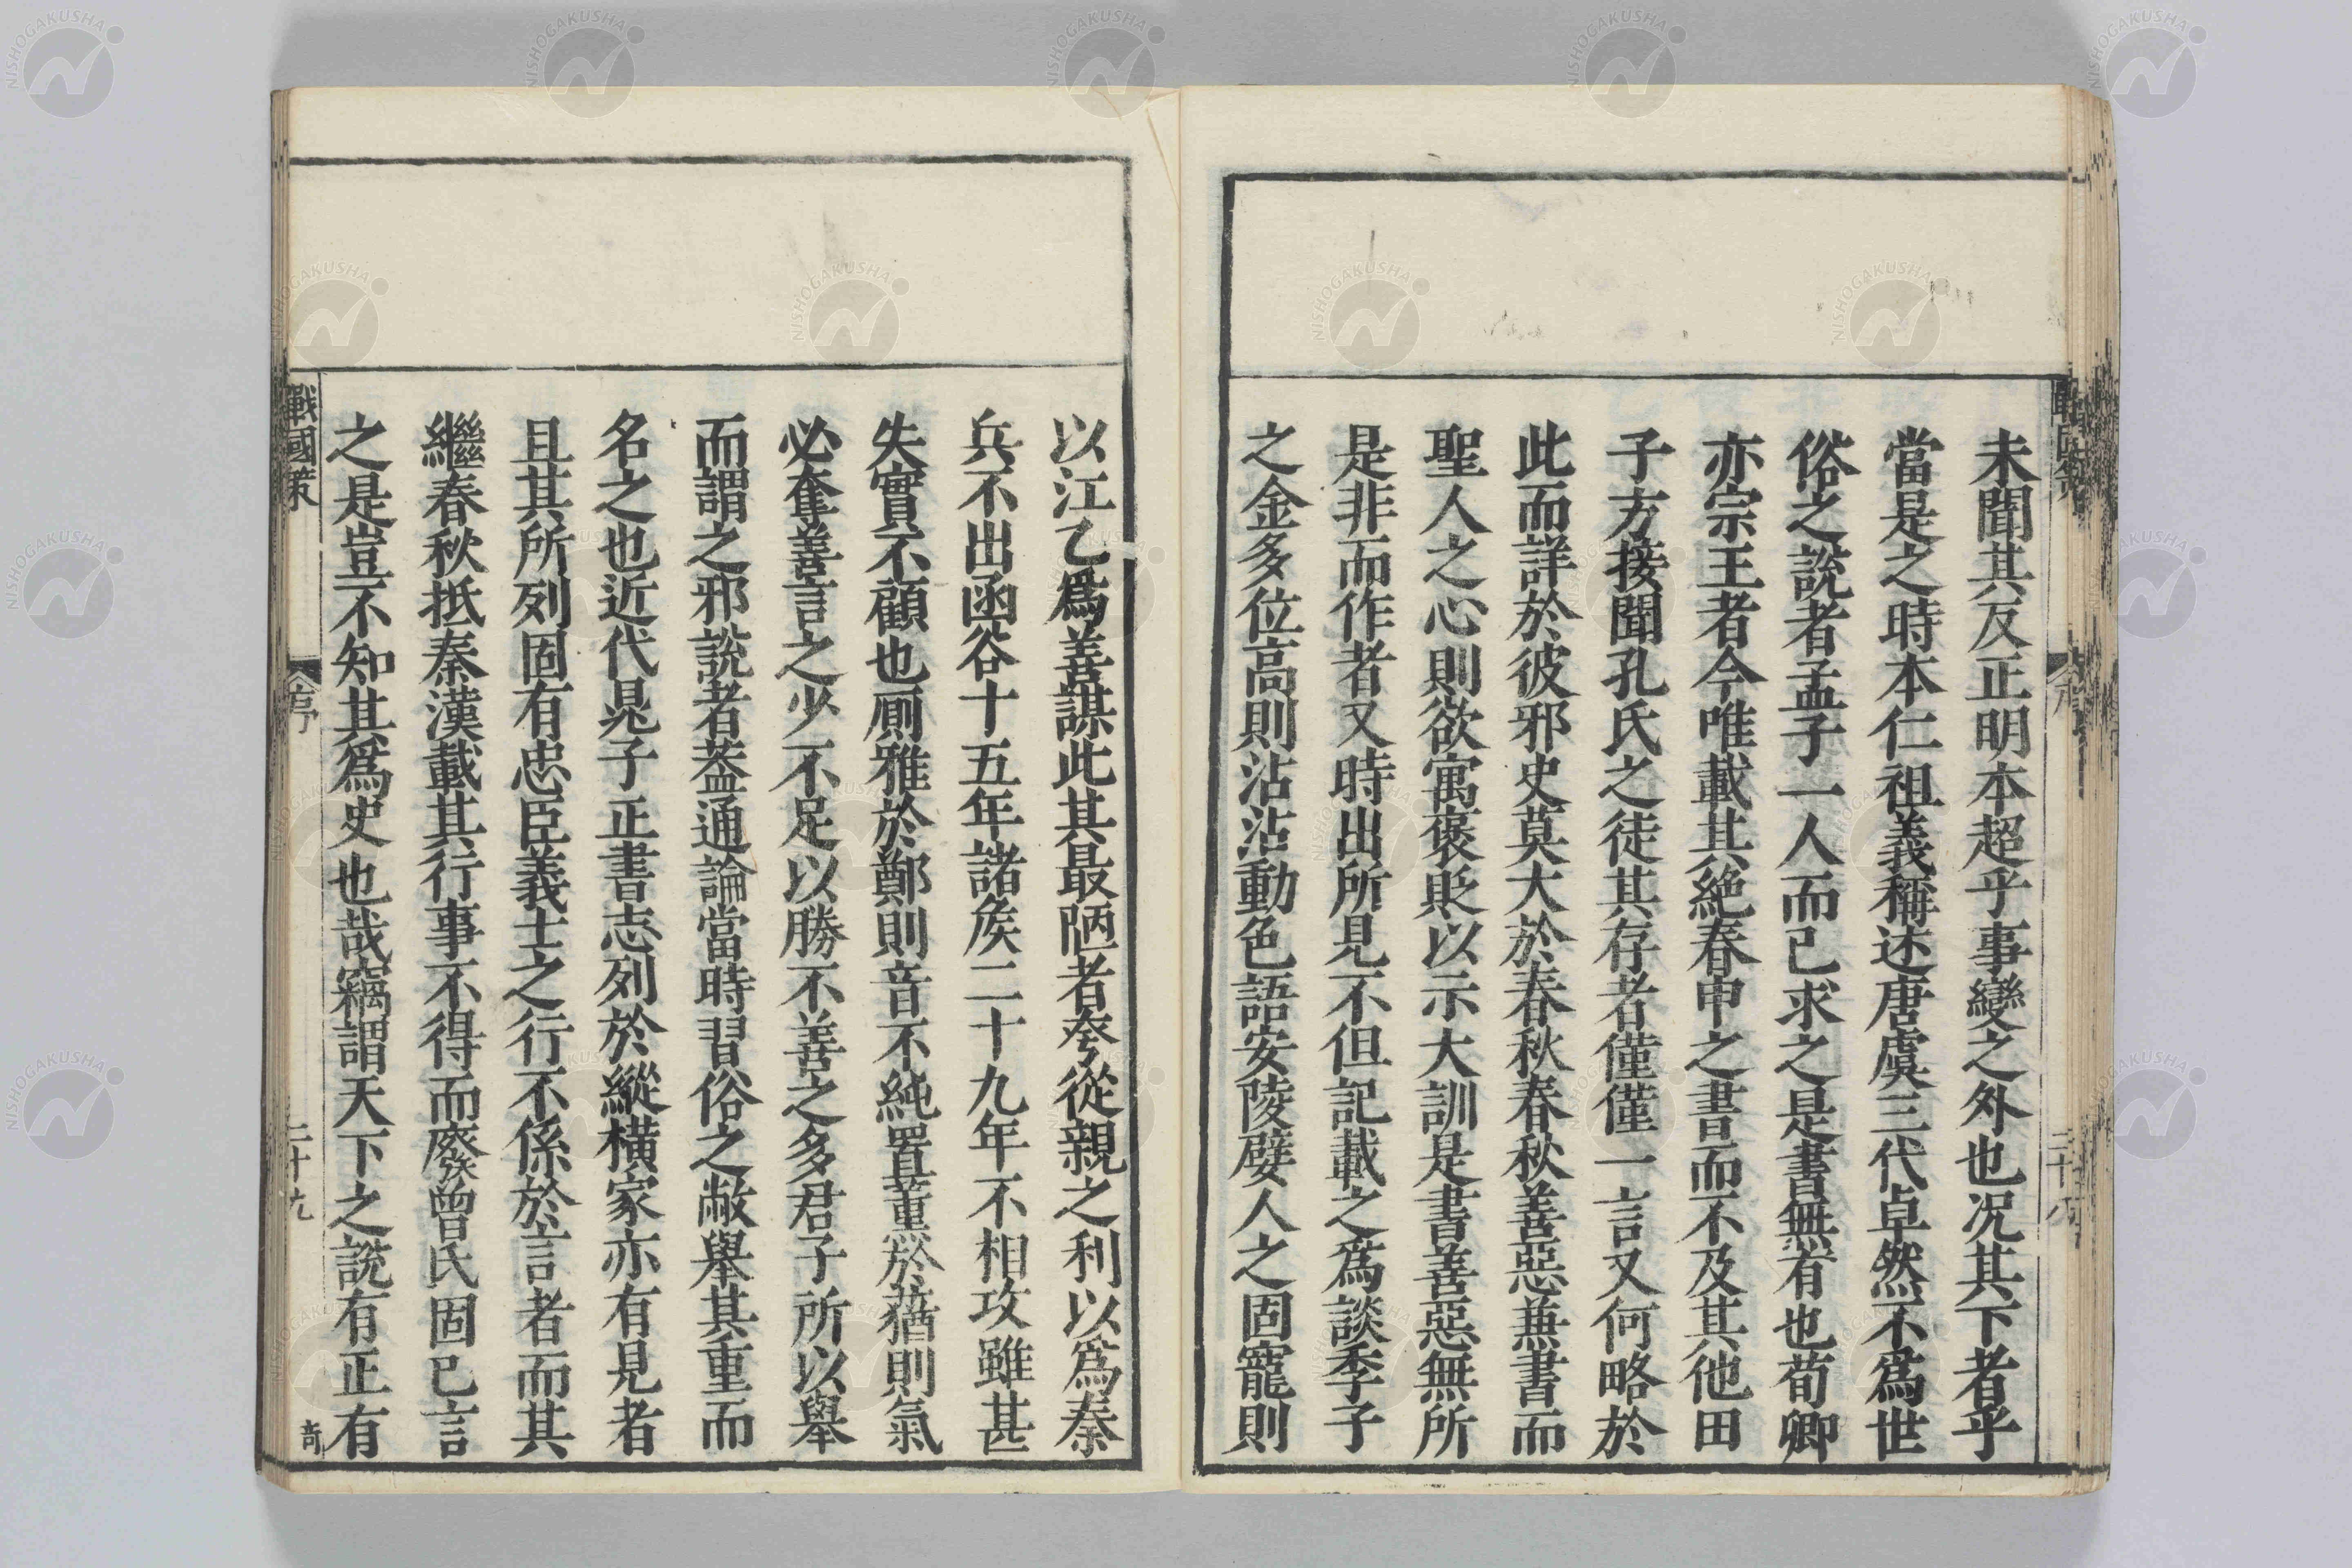 未聞其反正明本超乎事變之外也况其下者乎
當是之時本仁祖義稱述唐虞三代卓然不爲世
俗之說者孟子一人而已求之是書無有也荀卿
亦宗王者今唯載其絶春申之書而不及其他田
子方接聞孔氏之徒其存者僅僅一言又何略於
此而詳於彼邪史莫大於春秋春秋善惡兼書而
聖人之心則欲寓褒貶以示大訓是書善惡無所
是非而作者又時出所見不但記載之爲談季子
之金多位高則沾沾動色語安陵嬖人之固寵則
以江乙爲善謀此其最陋者夸從親之利以爲秦
兵不出函谷十五年諸侯二十九年不相攻雖甚
失實不顧也厠雅於鄭則音不純置薰於蕕則氣
必奪善言之少不足以勝不善之多君子所以舉
而謂之邪說者葢通論當時習俗之敝舉其重而
名之也近代晁子正書志列於縱橫家亦有見者
且其所列固有忠臣義士之行不係於言者而其
繼春秋抵秦漢載其行事不得而廢曾氏固已言
之是豈不知其爲史也哉竊謂天下之說有正有
戰國策
序
二十九
竒
NISHOGAKUSHA